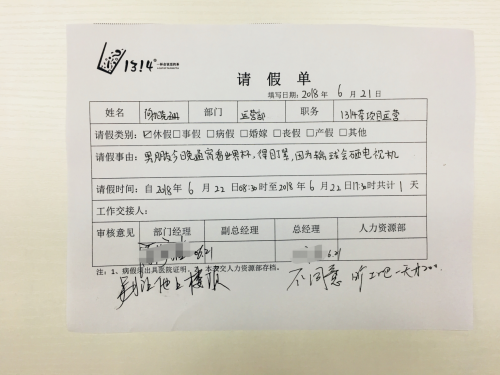 1314
请假单
填写日期：2018年6月21日
姓名 部门 运营部 职务 1314茶项目运营
请假类别：☑休假□事假□病假□婚嫁□丧假□产假□其他
请假事由：男朋友今晚通宵看世界杯，得盯紧，因为输球会砸电视机
请假时间：自2018年6月22日08:30时至2018年6月22日17:30时共计1天
工作交接人：
审核意见 部门经理 副总经理 总经理 人力资源部
6.21 6.21
注：1、病假须出具医院证明，本表交人力资源部存档。
不同意 旷工吧一天扣200